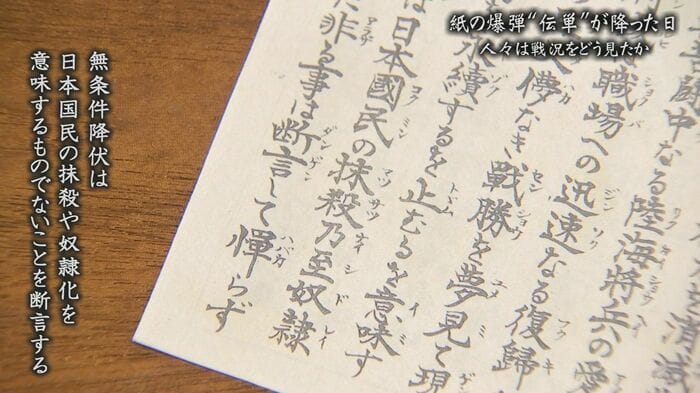 紙の爆弾“伝単”が降った日
人々は戦況をどう見たか
無条件降伏は
日本国民の抹殺や奴隷化を
意味するものでないことを断言する
闘中なる陸海将兵の愛
職場への迅速なる復帰
儚なき戦勝を夢見て現
永續するを止むるを意味す
は日本國民の抹殺乃至奴隷
非る事は断言して憚らず